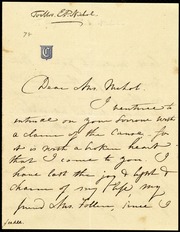 To Mrs. E. P. Nichol.
C
Dear Mrs. Nichol.
I venture to
intrude on your sorrow with
a claim of the cause. for
it is with a broken heart
that I come to you. I
have lost the joy & light &
charm of my life my
friend Mrs. Follen, since I